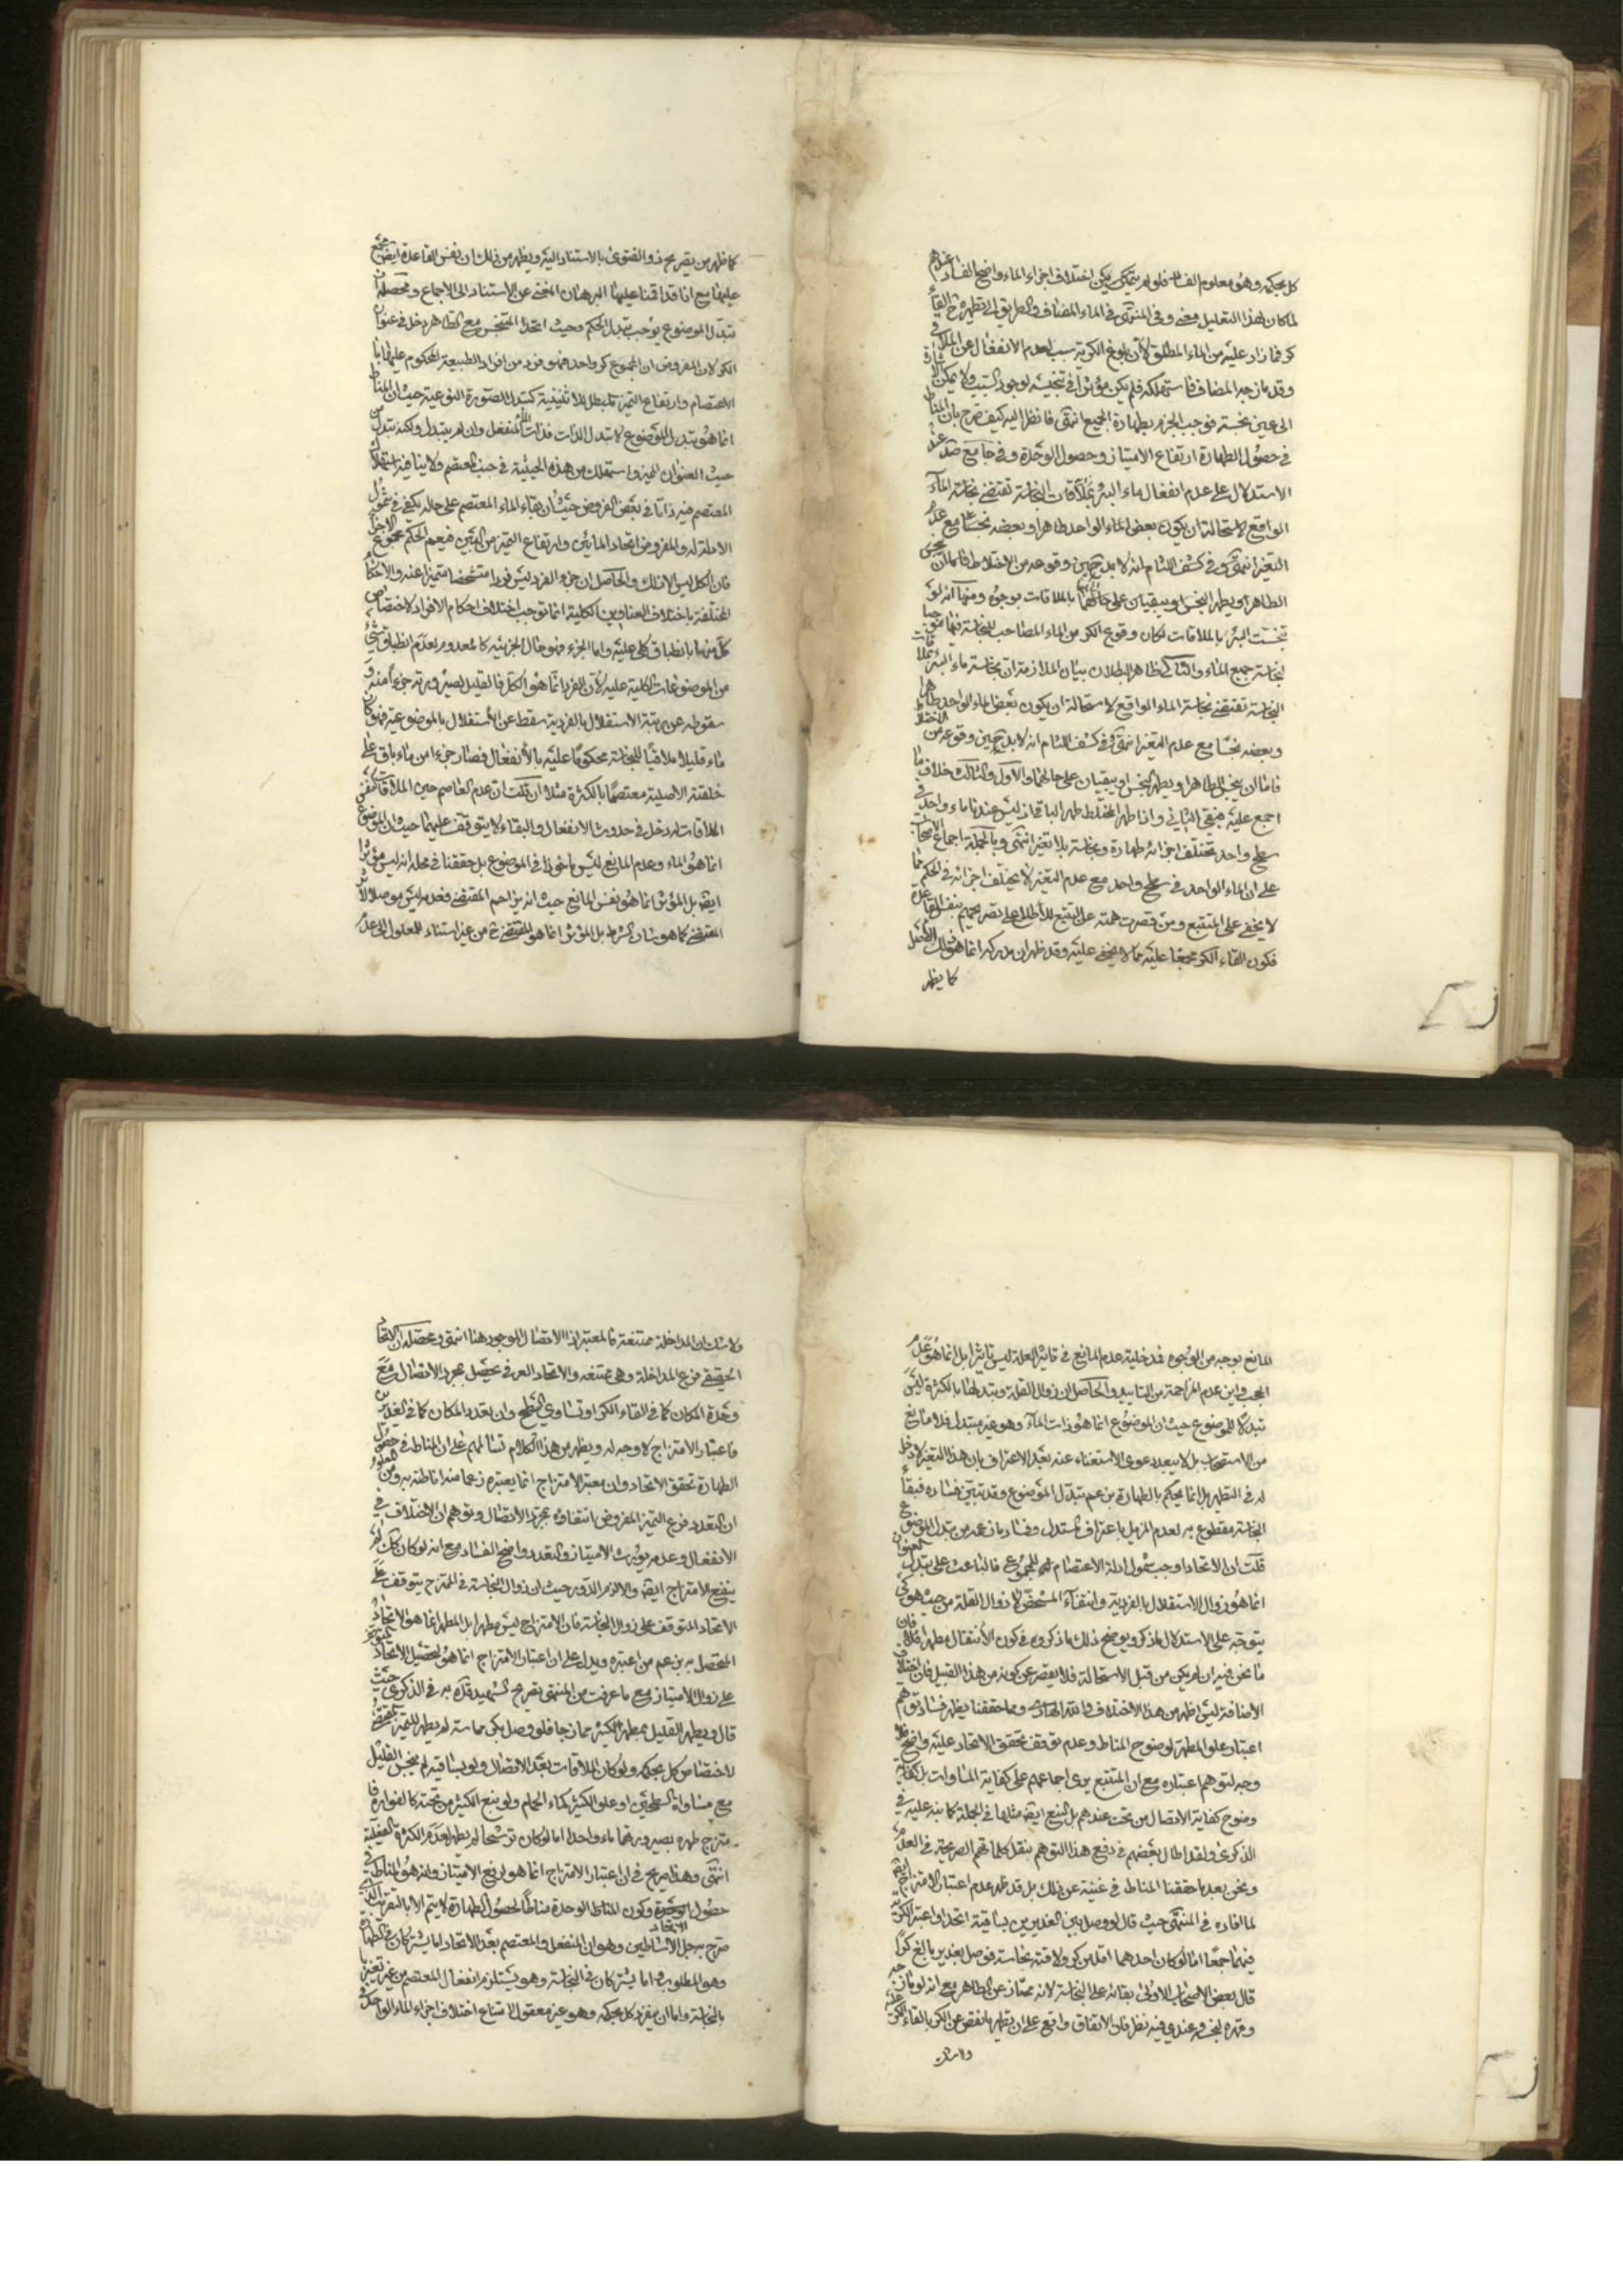 كل بحكمه وهو معلوم الفساد فلو لم يتمكن يكن اختلاف اجزاء الماء واضح الفساد عندهم
لما كان لهذا التعليل معنى وفي المنتهى في الماء المضاف والطريق الى تطهيره ح القاء
كر فما زاد عليه من الماء المطلق لان بلوغ الكرية سبب لعدم الانفعال عن الملاقي
وقد مازجه المضاف فاستهلكه فلم يكن مؤثرا في تنجيسه لوجود السبب ولا يمكن الاشارة
الى عين نجسة فوجب الجزم بطهارة الجميع انتهى فانظر اليه كيف صرح بان المناط
في حصول الطهارة ارتفاع الامتياز وحصول الوحدة وفي جامع صد عند
الاستدلال على عدم انفعال ماء البئر بملاقات النجاسة تقتضي نجاسة الماء
الواقع لاستحالة ان يكون بعض الماء الواحد طاهرا وبعضه نجسا مع عدم
التغير انتهى وفي كشف اللثام انه لابد حين وقوعه من الاختلاط فاما ان ينجس
الطاهر او يطهر النجس او يبقيان على حالهما بالملاقات بوجوه ومنها انه لو
تنجست البئر بالملاقات لكان وقوع الكر من الماء المصاحب للنجاسة فيها موجبا
لنجاسة جميع الماء والتالي ظاهر البطلان بيان الملازمة ان نجاسة ماء البئر بملاقات
النجاسة تقتضي نجاسة الماء الواقع لاستحالة ان يكون بعض الماء الواحد طاهرا
وبعضه نجسا مع عدم التغير انتهى وفي كشف اللثام انه لابد حين وقوعه من الاختلاط
فاما ان ينجس الطاهر او يطهر النجس او يبقيان على حالهما والاول والثالث خلاف ما
اجمع عليه فبقي الثاني واذا طهر المختلط طهر الباقي اذ ليس عندنا ماء واحد في
سطح واحد تختلف اجزائه طهارة ونجاسة بلا تغير انتهى وبالجملة اجماع الاصحاب
على ان الماء الواحد في سطح واحد مع عدم التغير لا يختلف اجزائه في الحكم مما
لا يخفى على المتتبع ومن قصرت همته عن التتبع للاطلاع على تصريحهم بنفس القاعدة
فكون القاء الكر مجمعا عليه مما لا يخفى عليه وقد ظهر ان مدركه انما هو ذلك الاصل
كما يظهر
كما ظهر من تصريح ذو الفتوى بالاستناد اليه ويظهر من ذلك ان نفس القاعدة ايض مجمع
عليها مع انا قد اقمنا عليها البرهان المغني عن الاستناد الى الاجماع ومحصله ان
تبدل الموضوع يوجب تبدل الحكم وحيث اتحد المتنجس مع الطاهر دخل في عنوان
الكر لان المفروض ان المجموع كر واحد فهو فرد من افراد الطبيعة المحكوم عليها با
الاعتصام وارتفاع التميز مبطل للاثنينية كتبدل الصورة النوعية حيث ان المناط
انما هو تبدل الموضوع لا تبدل الذات فذات الماء المنفعل وان لم يتبدل ولكنه تبدل من
حيث العنوان المميز واستهلك من هذه الحيثية في جنب المعتصم ولا ينافيه استهلاك
المعتصم فيه ذاتا في بعض الفروض حيث ان بقاء الماء المعتصم على حاله يكفي في شمول
الادلة له والمفروض اتحاد المائين وارتفاع التميز من البين فيعم الحكم مجموع الاجزاء
فان الكل ليس الا ذلك والحاصل ان جزء الفرد ليس فردا متشخصا متميزا عنه والاحكام
المختلفة باختلاف العناوين الكلية انما توجب اختلاف احكام الافراد لاختصاص
كل منها بانطباق كلي عليه واما الجزء فهو حال الجزئية كالمعدوم لعدم انطباق شيء
من الموضوعات الكلية عليه لان الفرد انما هو الكل فالقليل لصيرورته جزءا منه و
سقوطه عن مرتبة الاستقلال بالفردية سقط عن الاستقلال بالموضوعية فهو كان
ماء قليلا ملاقيا للنجاسة محكوما عليه بالانفعال فصار جزءا من ماء باق على
خلقته الاصلية معتصما بالكثرة مثلا ان قلت ان عدم العاصم حين الملاقات كنفس
الملاقات له دخل في حدوث الانفعال والبقاء لا يتوقف عليهما حيث ان الموضوع
انما هو الماء وعدم المانع ليس ماخوذا في الموضوع بل حققنا في محله انه ليس مؤثرا
ايض بل المؤثر انما هو نفس المانع حيث انه يزاحم المقتضي فعدمه ليس موصلا لاثر
المقتضي كما هو شان الشرط بل المؤثر انما هو المقتضي ح من غير استناد للمعلول الى عدم
المانع بوجه من الوجوه فدخلية عدم المانع في تاثير العلة ليس تاثيرا بل انما هو عدم
الحجب واين عدم المزاحمة من التاييد والحاصل ان زوال القلة وتبدلها بالكثرة ليس
تبدلا للموضوع حيث ان الموضوع انما هو ذات الماء وهو غير متبدل فلا مانع
من الاستصحاب بل لا يبعد دعوى الاستغناء عنه بعد الاعتراف بان هذا التغير لا دخل
له في التطهر بل انما يحكم بالطهارة من عم تبدل الموضوع وقد تبين فساده فبقاء
النجاسة مقطوع به لعدم المزيل باعتراف المستدل وفساد ما زعمه من تبدل الموضوع
قلت ان الاتحاد اوجب شمول ادلة الاعتصام للمجموع فالباعث على تبدل العنوان
انما هو زوال الاستقلال بالفردية وانتفاء المشخص لا زوال القلة من حيث هو كي
يتوجه على الاستدلال ما ذكر ويوضح ذلك ما ذكروه في كون الانتقال مطهرا فان
ما نحن فيه ان لم يكن من قبل الاستحالة فلا يقصر عن كونه من هذا القبيل فان اختلاف
الاضافة ليس اظهر من هذا الاختلاف والله الهادي ومما حققنا يظهر فساد توهم
اعتبار علو المطهر لوضوح المناط وعدم توقف تحقق الاتحاد عليه واضح فلا
وجه لتوهم اعتباره مع ان المتتبع يرى اجماعهم على كفاية المساوات بل كفاية
وضوح كفاية الاتصال من تحت عندهم بل النبع ايض مثلها في الجملة كما نبه عليه في
الذكرى ولقد اطال بعضهم في دفع هذا التوهم بنقل كلماتهم الصريحة في العدم
ونحن بعد ما حققنا المناط في غنية عن ذلك بل قد ظهر عدم اعتبار الامتزاج ايض
لما افاده في المنتهى حيث قال لو وصل بين الغديرين بساقية اتحدا واعتبر الكر
فيهما جمعا اما لو كان احدهما اقل من كر ولاقته نجاسة فوصل بغدير بالغ كرا
قال بعض الاصحاب الاولى بقائه على النجاسة لانه ممتاز عن الطاهر مع انه لو مازجه
وقهره لنجسه وعندي فيه نظر فان الاتفاق واقع على ان تطهير ما نقص عن الكر بالقاء الكر عليه
ولا شك
ولا شك ان المداخلة ممتنعة فالمعتبر اذا الاتصال الموجود هنا انتهى ومحصله ان الاتحاد
الحقيقي فرع المداخلة وهي ممتنعة والاتحاد العرفي يحصل بمجرد الاتصال مع
وحدة المكان كما في القاء الكر او تساوي السطح وان تعدد المكان كما في الغديرين
فاعتبار الامتزاج لا وجه له ويظهر من هذا الكلام تسالمهم على ان المناط في حصول
الطهارة تحقق الاتحاد وان معتبر الامتزاج انما يعتبره زعما منه اناطته به ومن المعلوم
ان التعدد فرع التميز المفروض انتفاؤه بمجرد الاتصال وتوهم ان الاختلاف في
الانفعال وعدمه يورث الامتياز والتعدد واضح الفساد مع انه لو كان كذلك لم
ينفع الامتزاج ايض والا لزم الدور حيث ان زوال النجاسة في الممتزج يتوقف على
الاتحاد المتوقف على زوال النجاسة فان الامتزاج ليس مطهرا بل المطهر انما هو الاتحاد
المتحصل به بزعم من اعتبره ويدل على ان اعتبار الامتزاج انما هو لتحصيل الاتحاد المتوقف
على زوال الامتياز مع ما عرفت من المنتهى تصريح الشهيد قده به في الذكرى حيث
قال ويطهر القليل بمطهر الكثير ممازجا فلو وصل بكر مماسة لم يطهر للتميز المقتضي
لاختصاص كل بحكمه ولو كان الملاقات بعد الاتصال ولو بساقية لم ينجس القليل
مع مساواة السطحين او علو الكثير كماء الحمام ولو نبع الكثير من تحته كالفوارة فا
متزج طهره بصيرورتهما ماء واحدا اما لو كان ترشحا لم يطهر لعدم الكثرة الفعلية
انتهى وهذا صريح في ان اعتبار الامتزاج انما هو لرفع الامتياز وانه هو المناط في
حصول الوحدة وكون المناط الوحدة مناطا لحصول الطهارة لا يتم الا بالتقريب الذي
الاتحاد
صرح به جل الاساطين وهو ان المنفعل والمعتصم بعد الاتحاد اما يشتركان في الطهارة
وهو المطلوب واما يشتركان في النجاسة وهو يستلزم انفعال المعتصم من غير تغير با
لنجاسة واما ان ينفرد كل بحكمه وهو غير معقول لامتناع اختلاف اجزاء الماء الواحد في